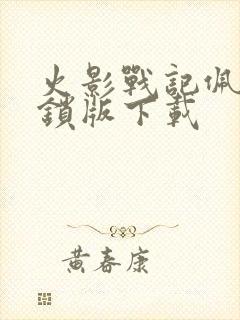 火影戰記佩
鎖版下載
黃春康